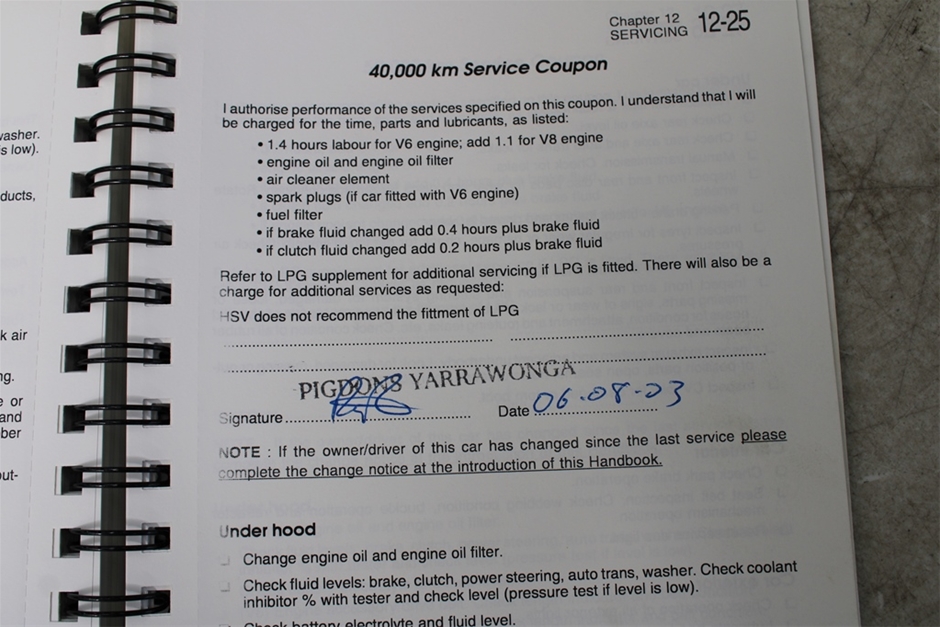 Chapter 12
SERVICING 12-25
washer.
s low).
ducts,
k air
ng.
e or
and
ber
out-
40,000 km Service Coupon
I authorise performance of the services specified on this coupon. I understand that I will
be charged for the time, parts and lubricants, as listed:
• 1.4 hours labour for V6 engine; add 1.1 for V8 engine
• engine oil and engine oil filter
• air cleaner element
• spark plugs (if car fitted with V6 engine)
• fuel filter
• if brake fluid changed add 0.4 hours plus brake fluid
• if clutch fluid changed add 0.2 hours plus brake fluid
Refer to LPG supplement for additional servicing if LPG is fitted. There will also be a
charge for additional services as requested:
HSV does not recommend the fittment of LPG
PIGDONS YARRAWONGA
Signature Date 06-08-03
NOTE : If the owner/driver of this car has changed since the last service please
complete the change notice at the introduction of this Handbook.
Under hood
Change engine oil and engine oil filter.
Check fluid levels: brake, clutch, power steering, auto trans, washer. Check coolant
inhibitor % with tester and check level (pressure test if level is low).
Check battery electrolyte and fluid level.